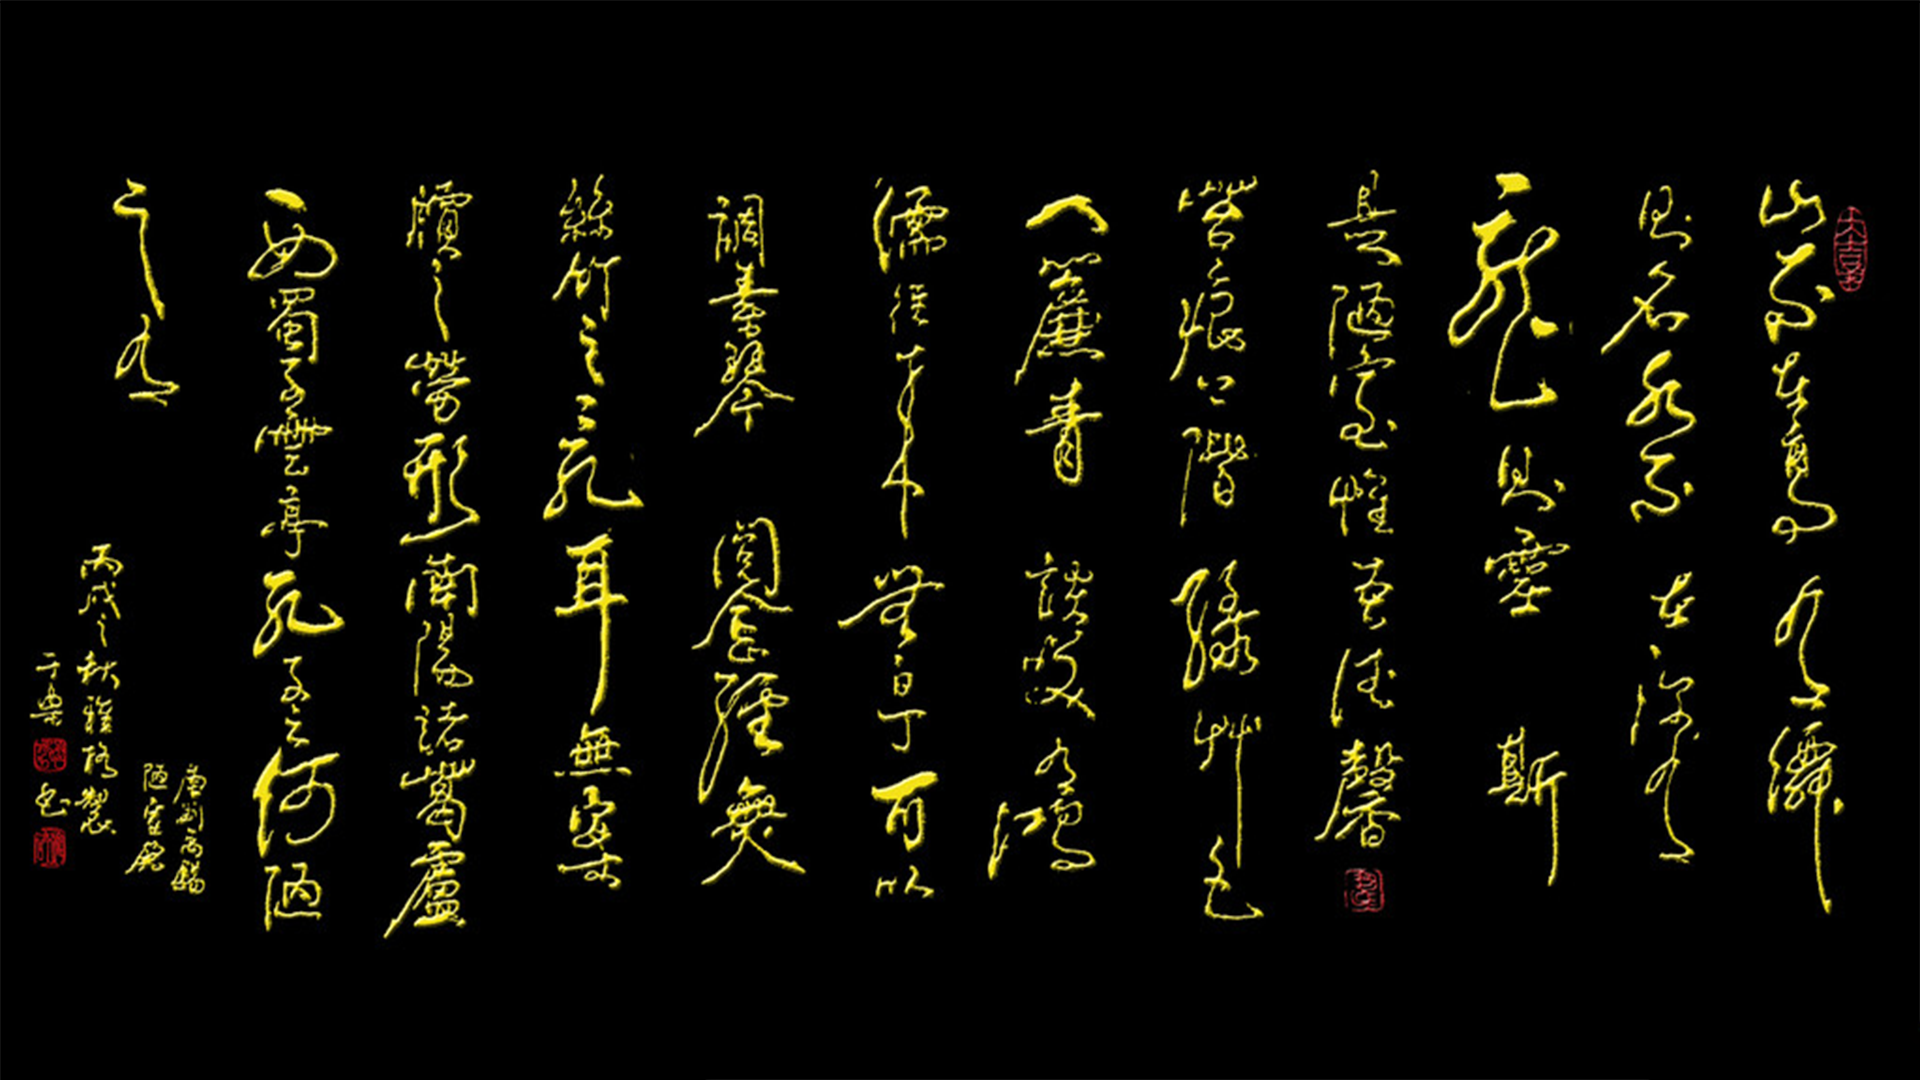 山不在高有僊
則名水不在深有
龍則靈斯
是陋室惟吾德馨
苔痕上階綠艸色
入簾青談笑有鴻
儒往来無白丁可以
調素琴閱金經無
絲竹之亂耳無案
牘之勞形南陽諸葛廬
西蜀子雲亭孔子云何陋
之有
唐劉禹錫
陋室銘
丙戌之秋雅格製
于魯書